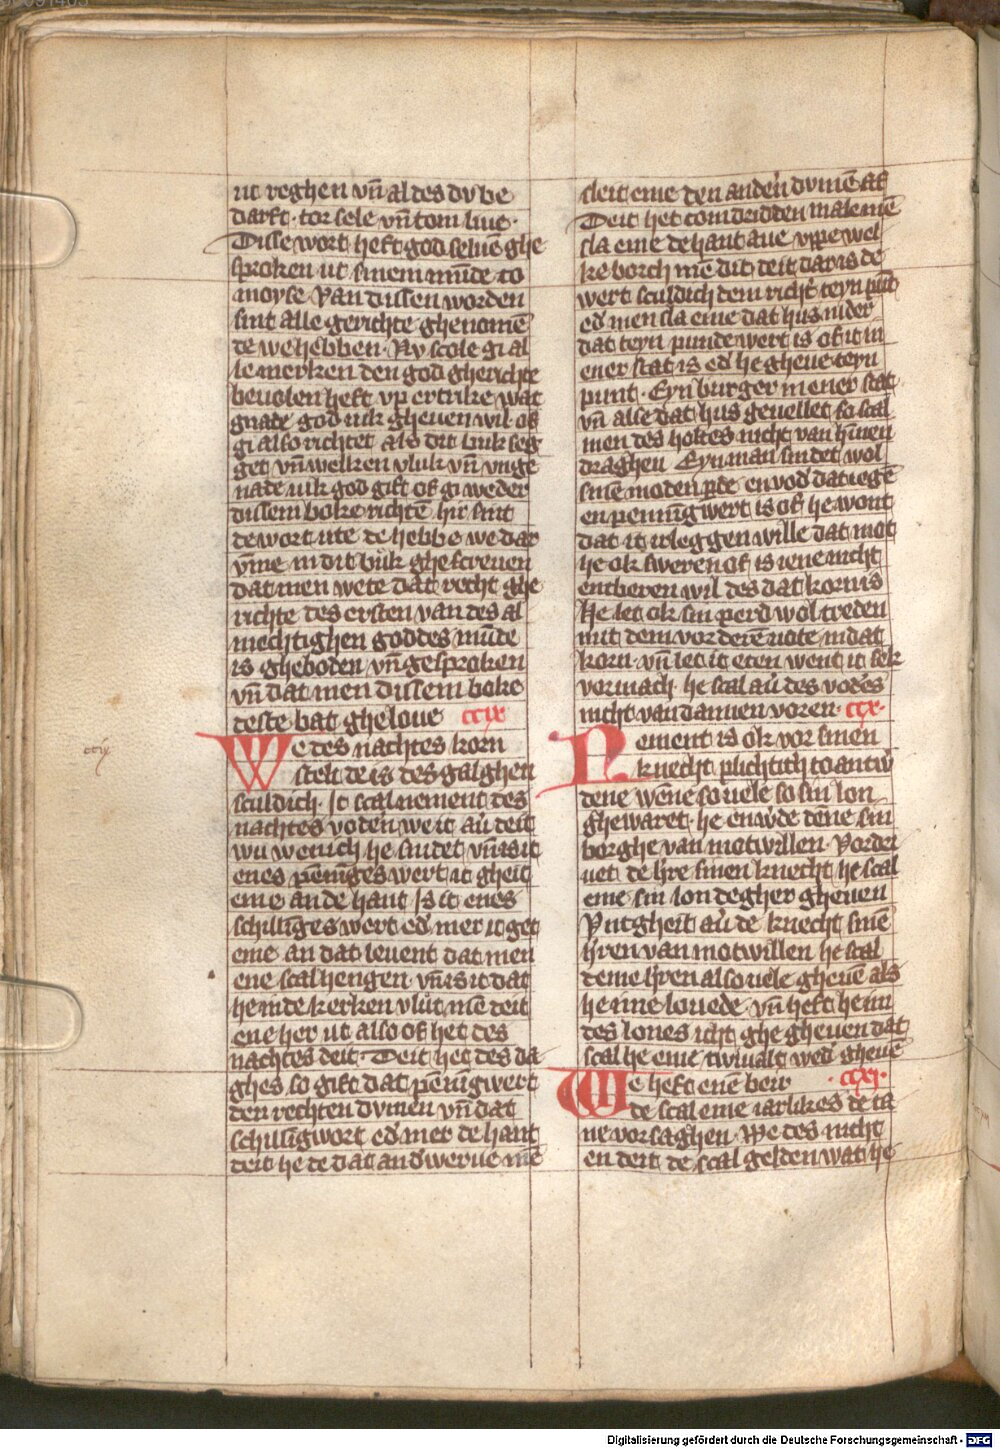 ut reghen vn̄ al des du be
darft · tor sele vn̄ tom liue ·
Disse wort heft god seluē ghe
sproken ut sinem mūde to
moyse Van dussen worden
sint alle gerichte ghenomē
de we hebben · Ny scole gi al
le merken den god gherichte
beuolen heft vp ertrike wat
gnade god iuk gheuen wil of
gi also richtet als dit buk seg
get vn̄ welken vluk vn̄ vnge
nade iuk god gift of gi weder
dissem boke richtē hir sint
de wort ute de hebbe we dar
vm̄e in dit buk ghescreuen
dat men wete dat recht ghe
richte des ersten van des al
mechtighen goddes mūde
is gheboden vn̄ gesproken
vn̄ dat men dissem boke
deste bat gheloue ccix
We des nachtes korn
stelt de is des galghen
sculdich · It scal nement des
nachtes voden we it au̓ deit
wu wenich he sindet vn̄ is it
enes pēniges wert it gheit
eme an de hant Is it enes
schillīges wert ed̓ mer it get
eme an dat leuent dat men
ene scal hengen · vn̄ is it dat
he in de kerken vlut mē deit
ene her ut also of het des
nachtes deit · Deit het des da
ghes so gift dat pēnīgwert
den rechten dumen vn̄ dat
schilligwort ed̓ mer de hant
deit he de dat andwerue mē
sleit eme den anden̓ dumē af
Deit het tom dridden male mē
sla eme de hant aue vppe wel
ke borch mē dit deit dar is de
wert sculdich dem richt̓ teyn pūt
ed̓ men sla eme dat hus nider
dat teyn punde wert is of it in
ener stat is ed̓ he gheue teyn
punt · Eyn burger in ener stat
vn̄ alse dat hus geuellet so scal
men des holtes nicht van hīnen
draghen Eyn man sindet wol
sinē moden p̱de en vod̓ dat iegē
en pennīg wert is of he wont
dat it irleggen wille dat mot
he ok sweren of is iene nicht
entberen wil des dat korn is
He let ok sin perd wol treden
mit dem vorderē uote in dat
korn · vn̄ let it eten went it sek
vormach · he scal au̓ des vod̓es
nicht van dannen voren · ccx ·
Nement is ok vor sinen
knecht plichtich to antw̓
dene wēne so uele so sin lon
ghewaret · he enw̓de dēne sin
borghe van motwillen · Vordri
uet de h̓re sinen knecht he scal
eme sin lon degher gheuen
Vntgheit au̓ de knecht sinē
h̓ren van motwillen he scal
deme h̓ren also uele gheuē als
he ime louede · vn̄ heft he im
des lones icht ghe gheuen dat
scal he eme twiualt wed̓ gheuē
We heft enē beir · ccxi ·
de scal eme iarlikes de ta
ne vorsaghen · We des nicht
en deit de scal gelden wat he
ccix
Digitalisierung gefördert durch die Deutsche Forschungsgemeinschaft - DFG